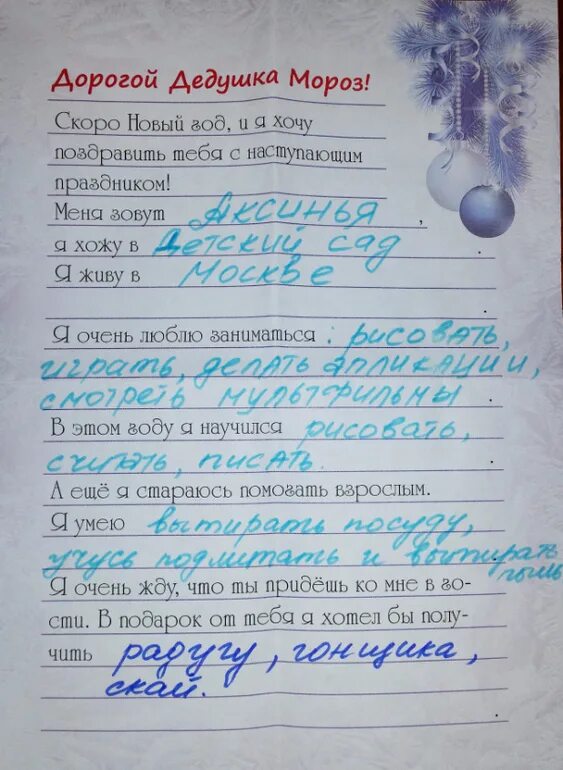 Дорогой Дедушка Мороз!
Скоро Новый год, и я хочу
поздравить тебя с наступающим
праздником!
Меня зовут Аксинья,
я хожу в Детский сад.
Я живу в Москве
.
Я очень люблю заниматься: рисовать,
играть, делать апликации,
смотреть мультфильмы.
В этом году я научился рисовать,
считать, писать.
А ещё я стараюсь помогать взрослым.
Я умею вытирать посуду,
учусь подмитать и вытирать
пыль
Я очень жду, что ты придёшь ко мне в го-
сти. В подарок от тебя я хотел бы полу-
чить радугу, гонщика,
скай.
.